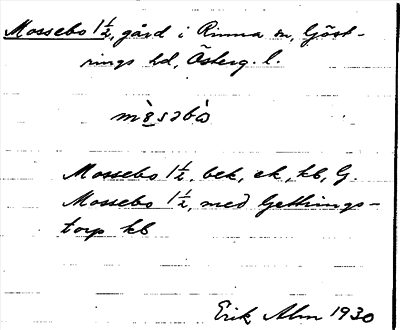 Mossebo 1½, gård i Rinna sn, Göst-
rings hd, Österg. l.
mòsəbò
Mossebo 1½, bek, ek, kb, G.
Mossebo 1½, med Gethings-
torp kb
Erik Alm 1930